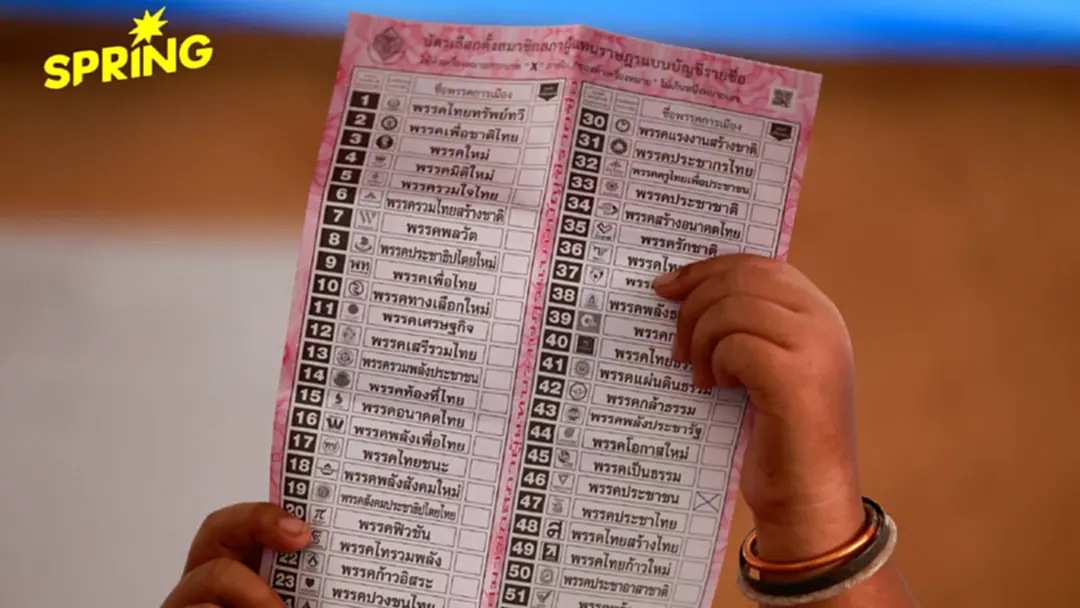 SPRING
บัตรเลือกตั้งสมาชิกสภาผู้แทนราษฎรแบบบัญชีรายชื่อ
ชื่อพรรคการเมือง
1 พรรคไทยทรัพย์ทวี
2 พรรคเพื่อชาติไทย
3 พรรคใหม่
4 พรรคมิติใหม่
5 พรรครวมใจไทย
6 พรรครวมไทยสร้างชาติ
7 พรรคพลวัต
8 พรรคประชาธิปไตยใหม่
9 พท พรรคเพื่อไทย
10 พรรคทางเลือกใหม่
11 พรรคเศรษฐกิจ
12 พรรคเสรีรวมไทย
13 พรรครวมพลังประชาชน
14 พรรคท้องที่ไทย
15 พรรคอนาคตไทย
16 พรรคพลังเพื่อไทย
17 พรรคไทยชนะ
18 พรรคพลังสังคมใหม่
19 พรรคสังคมประชาธิปไตยไทย
20 พรรคฟิวชัน
พรรคไทรวมพลัง
22 พรรคก้าวอิสระ
23 พรรคปวงชนไทย
ชื่อพรรคการเมือง
30 พรรคแรงงานสร้างชาติ
31 พรรคประชากรไทย
32 พรรคครูไทยเพื่อประชาชน
33 พรรคประชาชาติ
34 พรรคสร้างอนาคตไทย
35 พรรครักชาติ
36 พรรคไทย
37
38 พรรคพลัง
39
40
41 พรรคแผ่นดินธรรม
42 พรรคกล้าธรรม
43 พรรคพลังประชารัฐ
44 พรรคโอกาสใหม่
45 พรรคเป็นธรรม
46 พรรคประชาชน
47 พรรคประชาไทย
48 พรรคไทยสร้างไทย
49 พรรคไทยก้าวใหม่
50 พรรคประชาอาสาชาติ
51